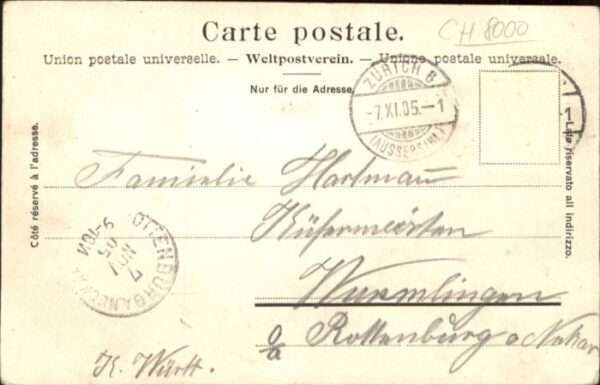 CH 8000
Carte postale.
Union postale universelle. — Weltpostverein. — Unione postale universale.
Nur für die Adresse
ZÜRICH 6
-7.XI.05.-1
(AUSSERSIHL)
1
Côté réservé à l'adresse.
Lato riservato all indirizzo.
Famielie Hartmann
Küfermeisters
Wurmlingen
o/a Rottenburg a Neckar
K. Württ.
ROTTENBURG A. NECKAR
7 NOV 05 9-10N